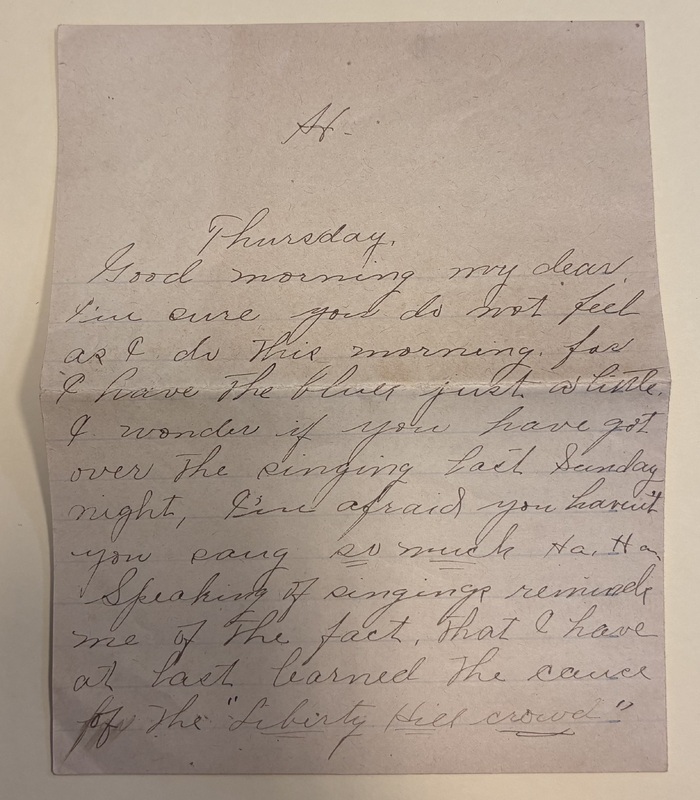 Thursday.
Good morning my dear,
I'm sure you do not feel
as I do this morning. for
I have the blues just a little.
I wonder if you have got
over the singing last Sunday
night, I'm afraid you haven't
you sang so much Ha. Ha
Speaking of singings reminds
me of the fact, that I have
at last learned the cause
of the "Liberty Hill crowd"